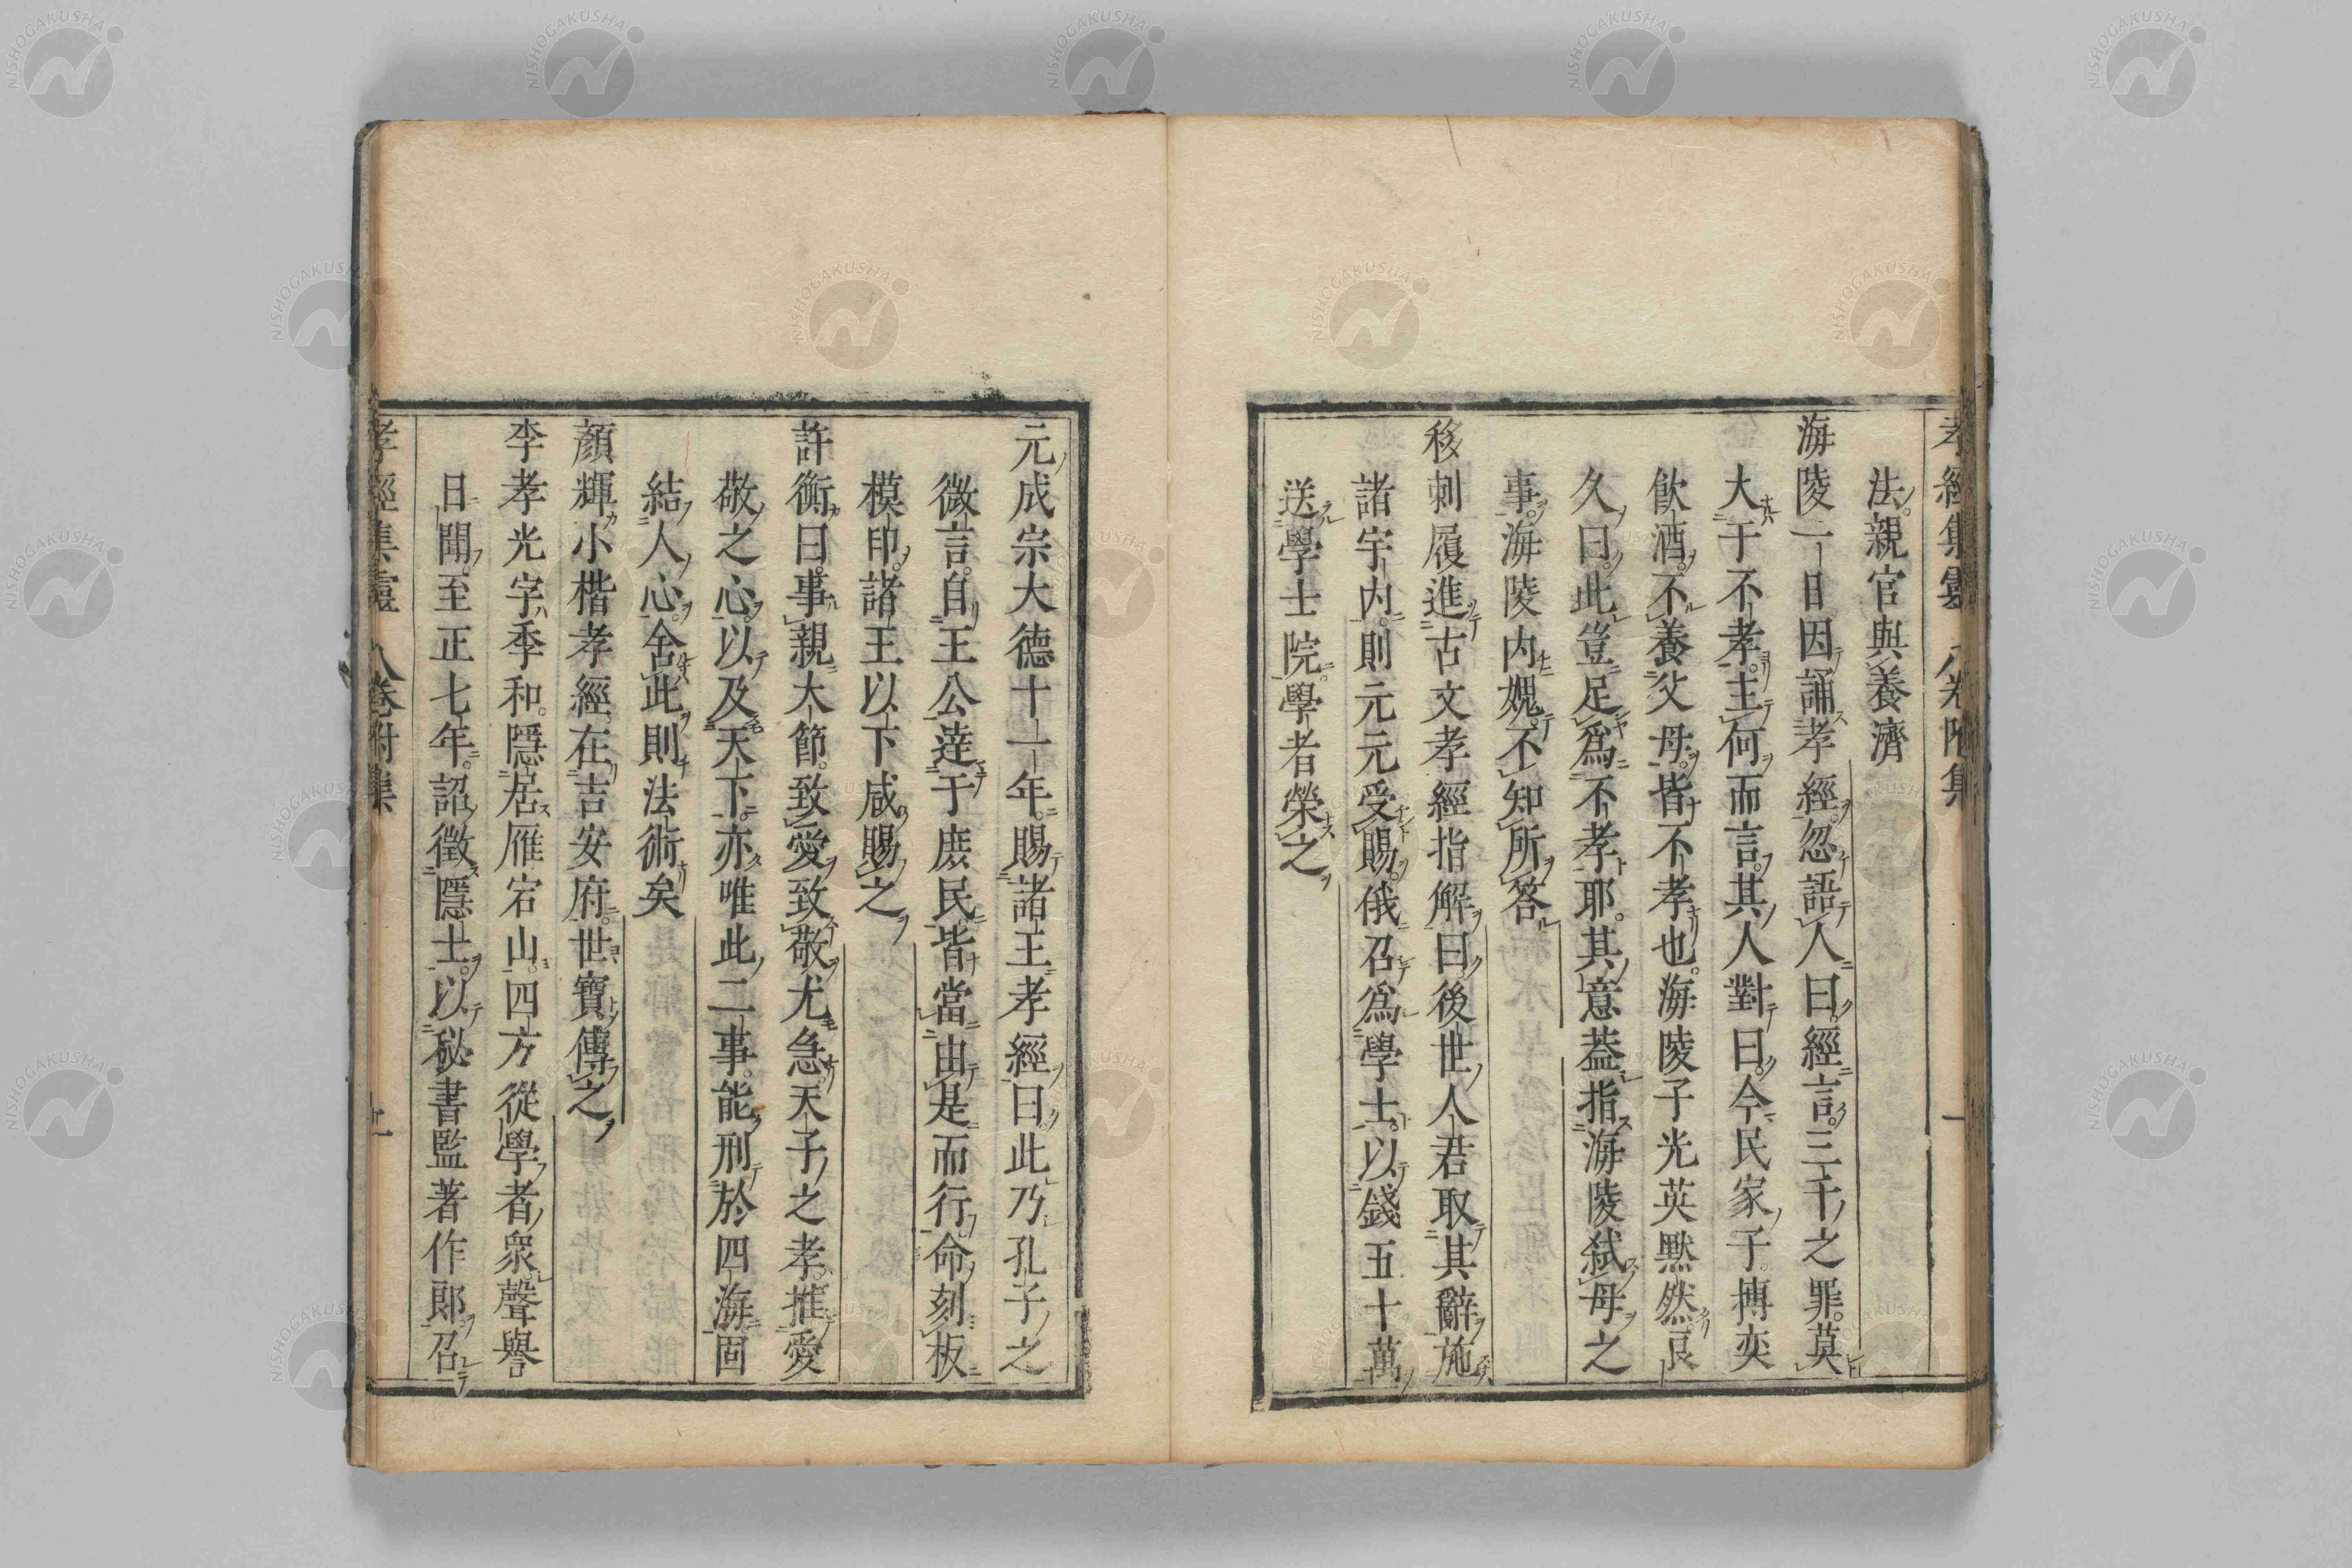 孝經集靈 八卷附集
法親官與養濟
海陵一日因誦孝經忽語人曰經言三千之罪莫
大于不孝主何而言其人對曰今民家子博奕
飲酒不養父母皆不孝也海陵子光英默然良
久曰此豈足爲不孝耶其意蓋指海陵弒母之
事海陵内媿不知所答
移剌履進古文孝經指解曰後世人君取其辭施
諸宇内則元元受賜俄召爲學士以錢五十萬
送學士院學者榮之
元成宗大德十一年賜諸王孝經曰此乃孔子之
微言自王公達于庶民皆當由是而行命刻板
模印諸王以下咸賜之
許衡曰事親大節致愛致敬尤急天子之孝推愛
敬之心以及天下亦唯此二事能刑於四海固
結人心舍此則法術矣
顏輝小楷孝經在吉安府世寶傳之
李孝光字季和隱居雁宕山四方從學者衆聲譽
日聞至正七年詔徵隱士以秘書監著作郎召
孝經集靈 八卷附集
NISHOGAKUSHA